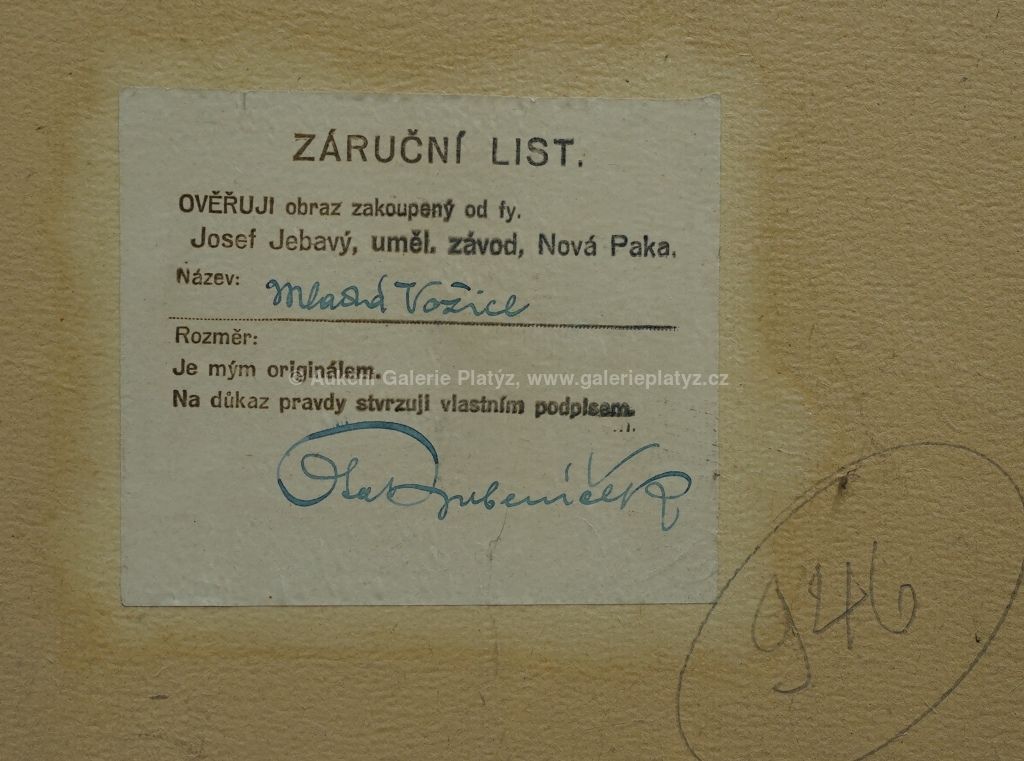 ZÁRUČNÍ LIST.
OVĚŘUJI obraz zakoupený od fy.
Josef Jebavý, uměl. závod, Nová Paka.
Název: Mladá Vožice
Rozměr:
Je mým originálem.
© Aukční Galerie Platýz, www.galerieplatyz.cz
Na důkaz pravdy stvrzuji vlastním podpisem.
Ota Bubeníček
946